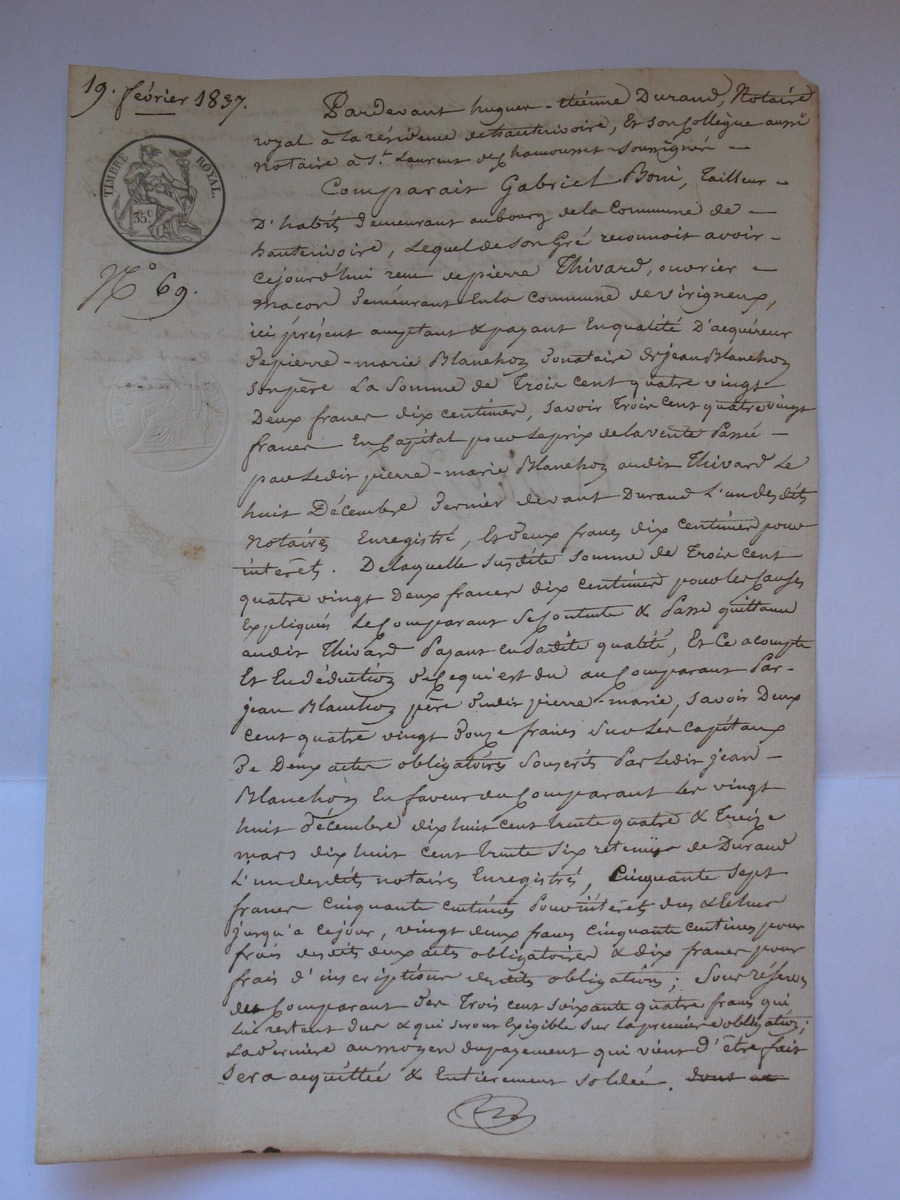 19. février 1837.
TIMBRE ROYAL.
35.c
N.° 69.
Pardevant hugues-étienne Durand, Notaire
royal à la résidence de hauterivoire, Et son Collègue aussi
notaire à St. Laurent de Chamousset soussignés —
Comparait Gabriel Boni, Tailleur —
D'habits Demeurant au bourg de la Commune de —
hauterivoire, Lequel de son Gré reconnoit avoir —
Cejourd'hui recu de pierre Thivard, ouvrier —
Macon Demeurant En la Commune de virigneux,
ici présent acceptant & payant En qualité D'acquéreur
De pierre-marie Blanchon Donataire de jean Blanchon
son père La Somme de Trois cent quatre vingt
Deux francs dix centimes, savoir Trois cent quatre vingt
francs En Capital pour Le prix de la vente Passée —
par Ledit pierre-marie Blanchon audit Thivard Le
huit Décembre Dernier devant Durand L'un desdits
Notaires Enregistré, Et Deux francs dix Centimes pour
intérêts. De laquelle susdite somme de Trois cent
quatre vingt Deux francs dix centimes pour les Causes
Expliquées Le Comparant se Contente & Passe quittance
audit Thivard Payant en sadite qualité, Et Ce acompte
Et En Déduction De Ce qui est du au Comparant Par —
jean Blanchon père Dudit pierre-marie, savoir Deux
cent quatre vingt Douze francs Sur Les Capitaux
De Deux actes obligatoires Souscrits Par Ledit jean —
Blanchon En faveur du Comparant les vingt
huit Décembre dix huit cent trente quatre & Treize
mars dix huit cent trente six retenus de Durand
L'un desdits notaires Enregistrés, Cinquante Sept
francs Cinquante centimes Pour intérêts dus & Echus
jusqu'a cejour, vingt deux francs cinquante centimes pour
frais desdits deux actes obligatoires & dix francs pour
frais d'inscriptions desdites obligations; Sous réserves
du Comparant Des Trois cent soixante quatre francs qui
lui restent dus & qui seront Exigible sur la première obligation;
La dernière au moyen du payement qui vient d'être fait
Sera acquittée & Entièrement soldée. dont ac